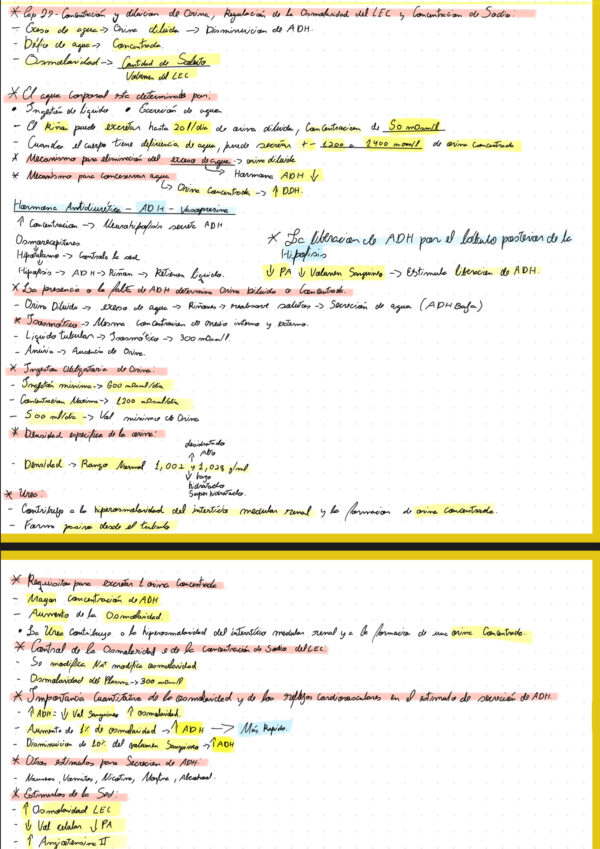 * Cap 29 - Concentración y dilución de Orina, Regulación de la Osmolaridad del LEC y Concentración de Sodio.
- Exceso de agua -> Orina diluida -> Disminución de ADH.
- Défic de agua -> Concentrada.
- Osmolaridad -> Cantidad de Soluto
Volumen del LEC
* El agua corporal esta determinada por:
• Ingestión de líquido • Excreción de agua
- El Riñón puede excretar hasta 20 l/día de orina diluida, Concentración de 50 mOsm/l
- Cuando el cuerpo tiene deficiencia de agua, puede secretar +- 1200 a 1400 mosm/l de orina concentrada
* Mecanismo para eliminación del exceso de agua -> orina diluida
↳ Hormona ADH ↓
* Mecanismo para conservar agua
↳ Orina Concentrada -> ↑ DDH.
Hormona Antidiurética - ADH - Vasopresina
↑ Concentracion -> Neurohipófisis secreta ADH
Osmorecептores
Hipotalamo -> Controla la sed
Hipofisis -> ADH -> Riñon -> Retiene líquido.
* La liberación de ADH por el lóbulo posterior de la Hipofisis
↓ PA ↓ Volumen Sanguineo -> Estimula liberación de ADH.
* La presencia o la falta de ADH determina Orina Diluida o Concentrada.
- Orina Diluida -> exceso de agua -> Riñones -> reabsorb solutos -> Secreción de agua (ADH Baja)
* Isosmótico -> Misma Concentracion de medio interno y externo.
- Líquido tubular -> Isosmótico -> 300 mOsm/l
- Anuria -> Ausencia de Orina.
* Ingestion Obligatoria de Orina:
- Ingestión minima -> 600 mOsml/día
- Concentracion Maxima -> 1200 mOsml/día
- 500 ml/día -> Vol minimo de Orina
* Densidad especifica de la orina:
deshidratado
↑ Alto
- Densidad -> Rango Normal 1,002 y 1,028 g/ml
↓ bajo
hidratado
Super hidratado.
* Urea:
- Contribuye a la hiperosmolaridad del intersticio medular renal y la formacion de orina concentrada.
- Forma pasiva desde el tubulo
* Requisitos para excretar 1 orina Concentrada
- Mayor concentración de ADH
- Aumento de la Osmolaridad.
• La Urea Contribuye a la hiperosmolaridad del intersticio medular renal y a la formacion de una orina Concentrada.
* Control de la Osmolaridad e de la Concentración de Sodio del LEC:
- Se modifica Na+ modifica osmolaridad
- Osmolaridad del Plasma -> 300 mOsm/l
* Importancia Cuantitativa de la osmolaridad y de los reflejos cardiovasculares en el estimulo de secreción de ADH.
- ↑ ADH = ↓ Vol Sanguineo ↑ osmolaridad.
- Aumento de 1% de osmolaridad -> ↑ ADH -> Más Rapido.
- Disminucion de 10% del volumen Sanguineo -> ↑ ADH
* Otros estímulos para Secrecion de ADH.
- Nauseas, Vomitos, Nicotina, Morfina, Alcohol.
* Estimulos de la Sed:
- ↑ Osmolaridad LEC
- ↓ Vol celular ↓ PA
- ↑ Angiotensina II